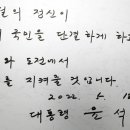 의 정신이
국민을 단결하게 하
와 도전에서
를 지켜줄 것입니다.
2022. 5. 18
대통령 윤 석